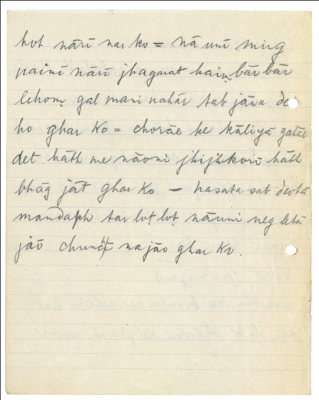 hot nārī nar ko = nā unī mirg
painī nārī jhagarat hain bār bār
lehom gal mari nahār tab jāsa de
ho ghar ko = chorāe ke kāliyā gatāe
det hāth me nāoni jhijhkori hāth
bhāg jāt ghar ko — hasata sat deotā
mandaph tar lot lot nāuni neg letā
jāo chunrī na jāo ghar ko.